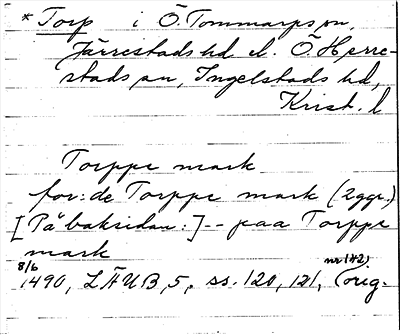 * Torp i Ö. Tommarps sn,
Järrestads hd el. Ö. Herre-
stads sn, Ingelstads hd,
Krist. l
Torppe mark
for: de Torppe mark (2 ggr.)
[På baksidan:] -- paa Torppe
mark
8/6 1490, LÄUB, 5, ss. 120, 121, (orig.
nr 142)